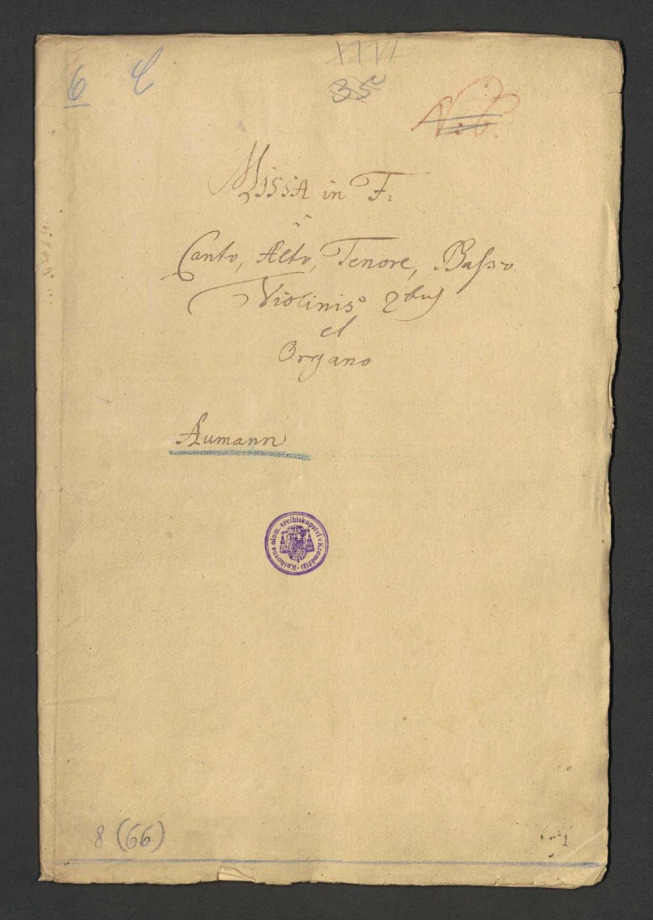 6
XXVI
35
Missa in F.
a
Canto, Alto, Tenore, Basso
Violinis 2bus
et
Organo
Aumann
Knihovna olom. arcibiskupství v Kroměříži
8 (66)
1